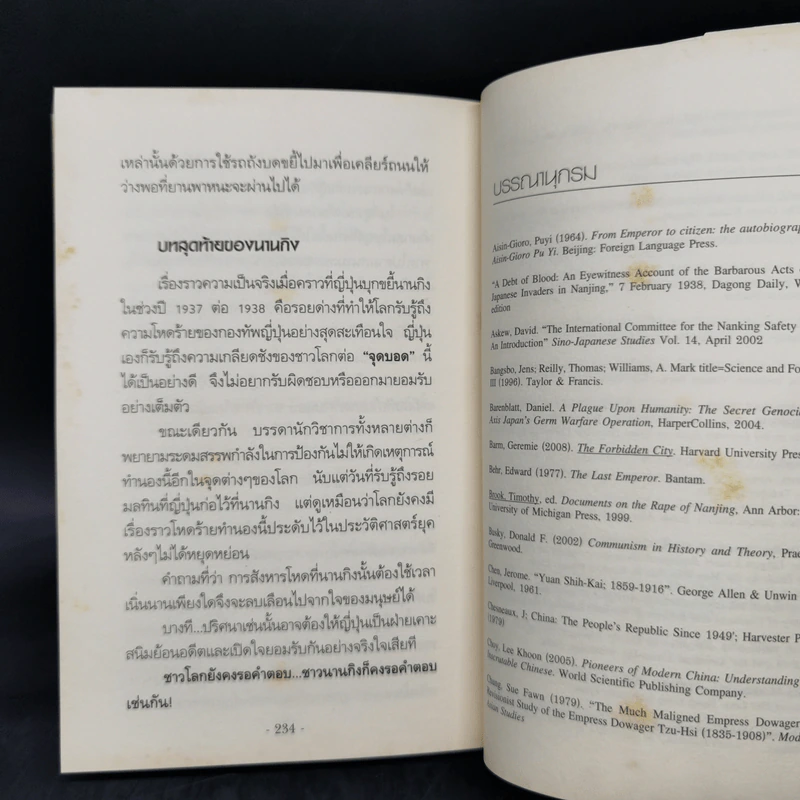 เหล่านั้นด้วยการใช้รถถังบดขยี้ไปมาเพื่อเคลียร์ถนนให้
ว่างพอที่ยานพาหนะจะผ่านไปได้
บทสุดท้ายของนานกิง
เรื่องราวความเป็นจริงเมื่อคราวที่ญี่ปุ่นบุกขยี้นานกิง
ในช่วงปี 1937 ต่อ 1938 คือรอยด่างที่ทำให้โลกรับรู้ถึง
ความโหดร้ายของกองทัพญี่ปุ่นอย่างสุดสะเทือนใจ ญี่ปุ่น
เองก็รับรู้ถึงความเกลียดชังของชาวโลกต่อ “จุดบอด” นี้
ได้เป็นอย่างดี จึงไม่อยากรับผิดชอบหรือออกมายอมรับ
อย่างเต็มตัว
ขณะเดียวกัน บรรดานักวิชาการทั้งหลายต่างก็
พยายามระดมสรรพกำลังในการป้องกันไม่ให้เกิดเหตุการณ์
ทำนองนี้อีกในจุดต่างๆของโลก นับแต่วันที่รับรู้ถึงรอย
มลทินที่ญี่ปุ่นก่อไว้ที่นานกิง แต่ดูเหมือนว่าโลกยังคงมี
เรื่องราวโหดร้ายทำนองนี้ประดับไว้ในประวัติศาสตร์ยุค
หลังๆไม่ได้หยุดหย่อน
คำถามที่ว่า การสังหารโหดที่นานกิงนั้นต้องใช้เวลา
เนิ่นนานเพียงใดจึงจะลบเลือนไปจากใจของมนุษย์ได้
บางที...ปริศนาเช่นนั้นอาจต้องให้ญี่ปุ่นเป็นฝ่ายเคาะ
สนิมย้อนอดีตและเปิดใจยอมรับกันอย่างจริงใจเสียที
ชาวโลกยังคงรอคำตอบ...ชาวนานกิงก็คงรอคำตอบ
เช่นกัน!
- 234 -
บรรณานุกรม
Aisin-Gioro, Puyi (1964). From Emperor to citizen: the autobiograp
Aisin-Gioro Pu Yi. Beijing: Foreign Language Press.
“A Debt of Blood: An Eyewitness Account of the Barbarous Acts
Japanese Invaders in Nanjing,” 7 February 1938, Dagong Daily, W
edition
Askew, David. “The International Committee for the Nanking Safety
An Introduction” Sino-Japanese Studies Vol. 14, April 2002
Bangsbo, Jens; Reilly, Thomas; Williams, A. Mark title=Science and Fo
III (1996). Taylor & Francis.
Barenblatt, Daniel. A Plague Upon Humanity: The Secret Genoci
Axis Japan's Germ Warfare Operation, HarperCollins, 2004.
Barm, Geremie (2008). The Forbidden City. Harvard University Pres
Behr, Edward (1977). The Last Emperor. Bantam.
Brook, Timothy, ed. Documents on the Rape of Nanjing, Ann Arbor:
University of Michigan Press, 1999.
Busky, Donald F. (2002) Communism in History and Theory, Prae
Greenwood.
Chen, Jerome. “Yuan Shih-Kai; 1859-1916”. George Allen & Unwin
Liverpool, 1961.
Chesneaux, J; China: The People's Republic Since 1949'; Harvester P
1979)
Choy, Lee Khoon (2005). Pioneers of Modern China: Understanding
Inscrutable Chinese. World Scientific Publishing Company.
Chung, Sue Fawn (1979). “The Much Maligned Empress Dowager
Revisionist Study of the Empress Dowager Tzu-Hsi (1835-1908)”. Mod
Asian Studies